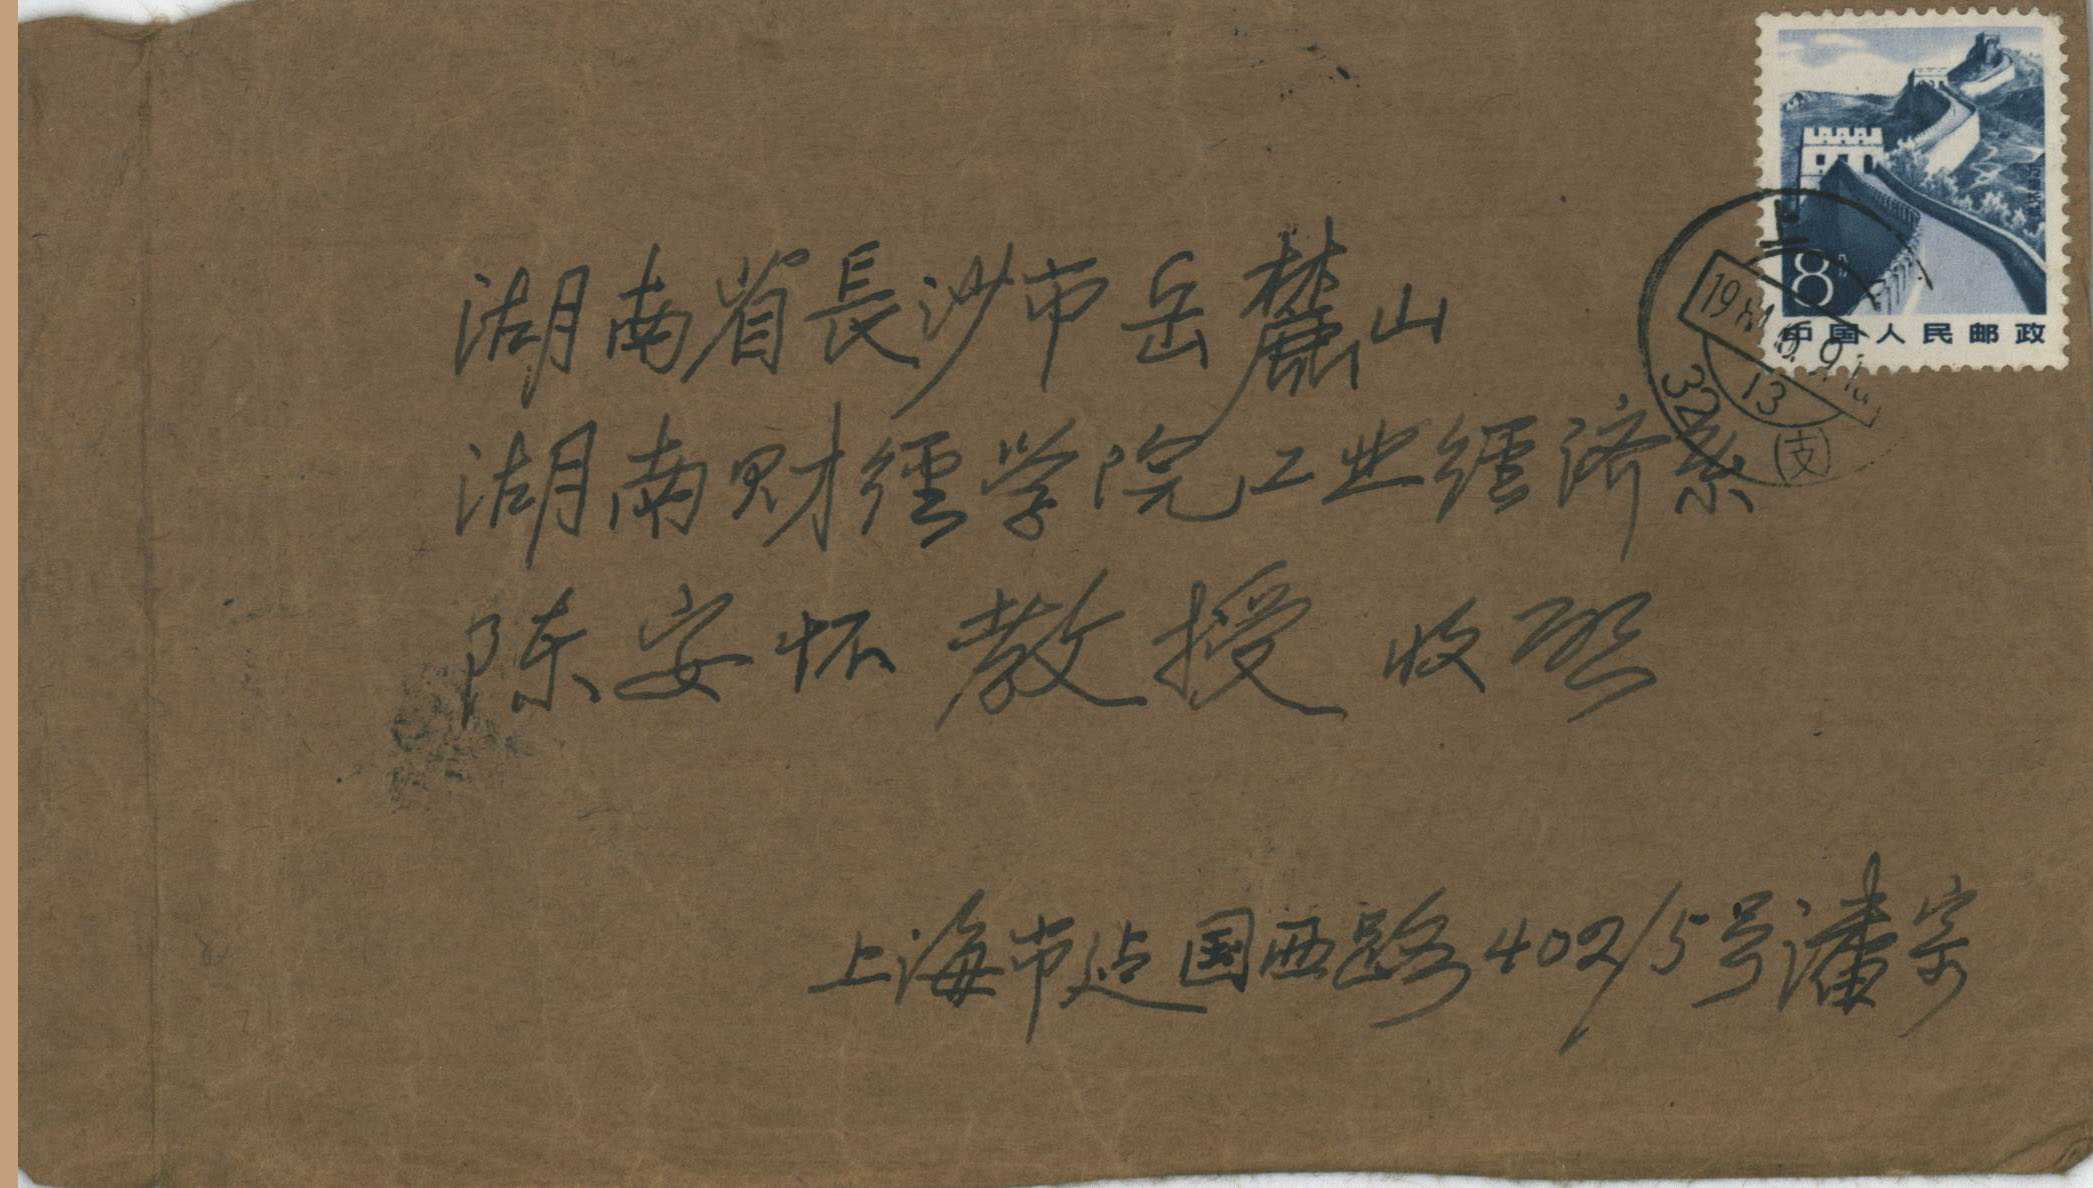 8分
中国人民邮政
湖南省長沙市岳麓山
湖南财经学院工业经济系
陈安怀教授 收启
13
32
(支)
上海市延国西路402/5号潘宗